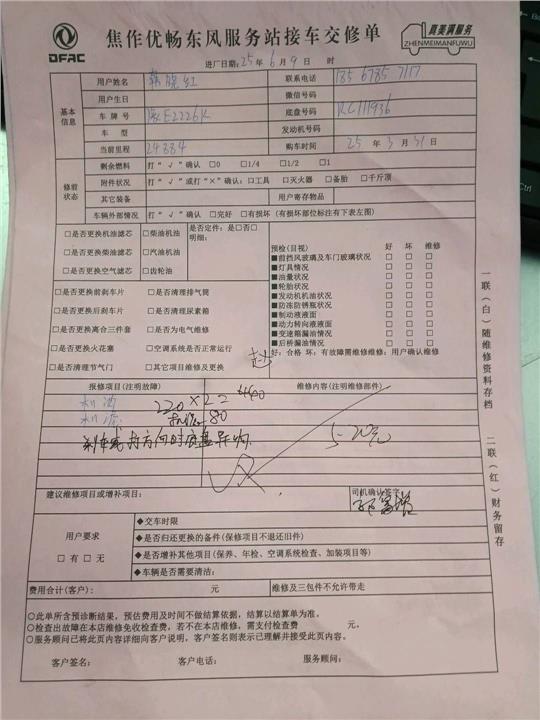 DFAC
焦作优畅东风服务站接车交修单
真美满服务
ZHENMEIMANFUWU
进厂日期:25年6月9日 时
基本信息
用户姓名 联系电话 185 6785 7117
用户生日 微信号码
车牌号 底盘号码 RC111936
车型 发动机号码
当前里程 29884 购车时间 25年3月31日
修前状态
剩余燃料 打“√”确认 □0 □1/4 □1/2 □1
附件状况 打“√”或打“×”确认:□工具 □灭火器 □备胎 □千斤顶
其它装备 用户寄存物品
车辆外部情况 打“√”确认 □完好 □有损坏(有损坏部位标注有下表左图)
□是否更换机油滤芯 □柴油机油 是否定件:是□否□
明细:
□是否更换柴油滤芯 □汽油机油
□是否更换空气滤芯 □齿轮油
□是否更换前刹车片 □是否清理排气筒
□是否更换后刹车片 □是否清理尿素箱
□是否更换离合三件套 □是否为电气维修
□是否更换火花塞 □空调系统是否正常运行
□是否清理节气门 □其它项目维修及更换
预检(目视) 好 坏 维修
■前挡风玻璃及车门玻璃状况 □ □ □
■灯具情况 □ □ □
■油量状况 □ □ □
■轮胎状况 □ □ □
■发动机机油状况 □ □ □
■防冻防锈瓶状况 □ □ □
■制动液液面 □ □ □
■动力转向液液面 □ □ □
■变速箱漏油情况 □ □ □
■后桥漏油情况 □ □ □
好:合格 坏:有故障需维修维修:用户确认维修
报修项目(注明故障) 维修内容(注明维修部件)
机油 220×22 4440
机滤 机滤 80
刹车或打方向时底盘异响
520元
建议维修项目或增补项目: 司机确认签字:
用户要求
□有 □无
◆交车时限
◆是否归还更换的备件(保修项目不退还旧件)
◆是否增补其他项目(保养、年检、空调系统检查、加装项目等)
◆车辆是否需要清洁:
费用合计(客户): 元 维修及三包件不允许带走
○此单所含预诊断结果,预估费用及时间不做结算依据,结算以结算单为准。
○检查出故障在本店维修免收检查费,若不在本店维修,需支付检查费 元。
○服务顾问已将此页内容详细向客户说明,客户签名则表示已理解并接受此页内容。
客户签名: 客户电话: 服务顾问:
一联(白)随维修资料存档
二联(红)财务留存